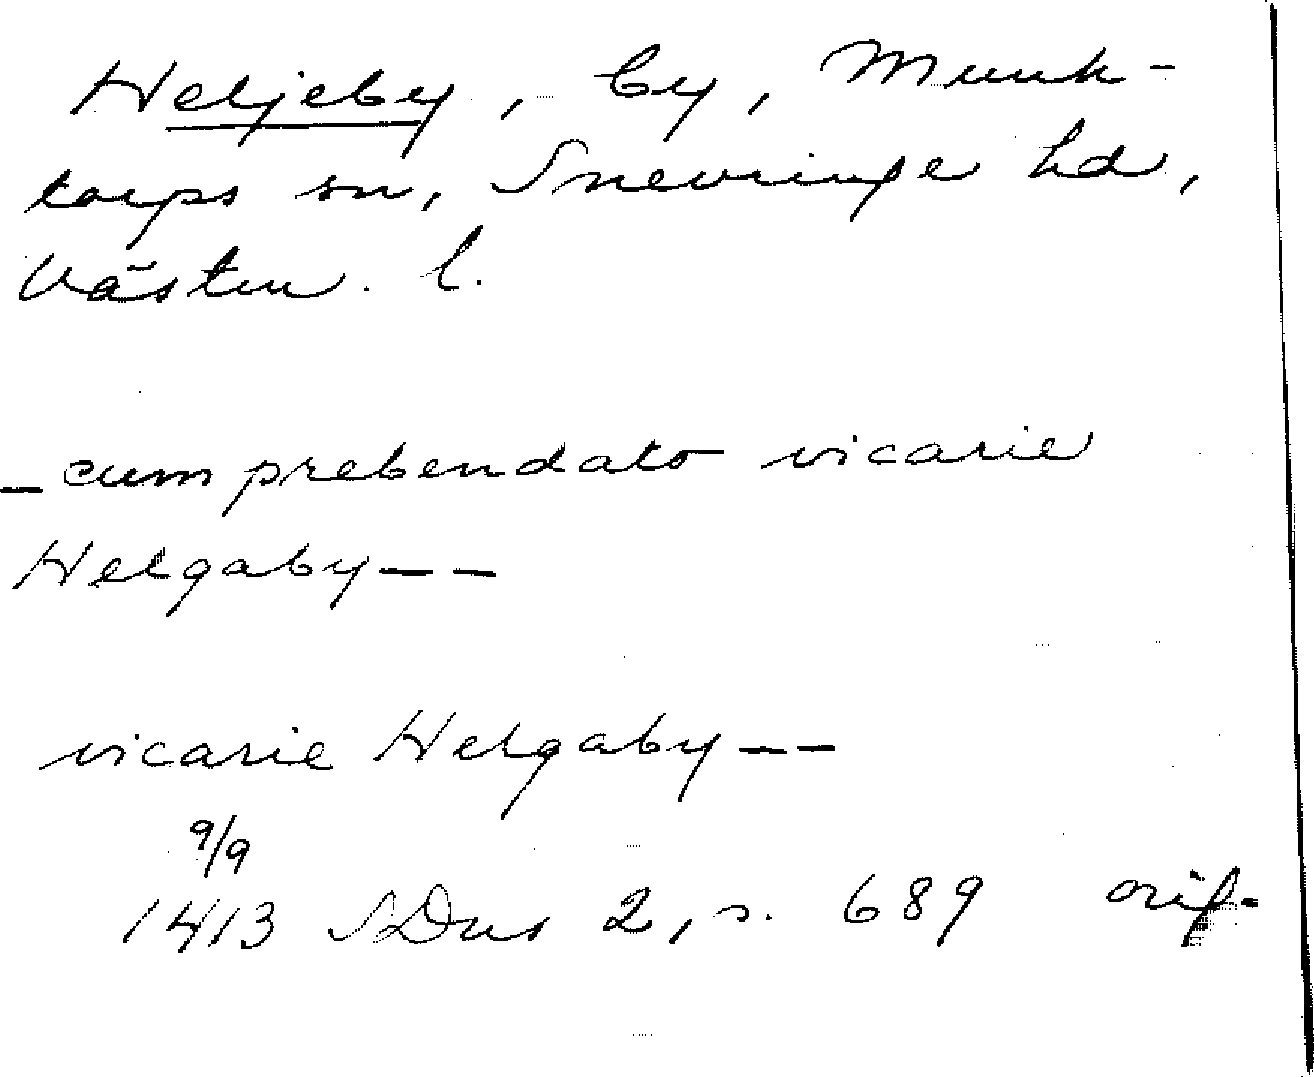 Heljeby, by, Munk-
torps sn, Snevringe hd,
Västm. l.
- cum prebendato vicarie
Helgaby - -
vicarie Helgaby - -
9/9
1413 SDns 2, s. 689 orig.